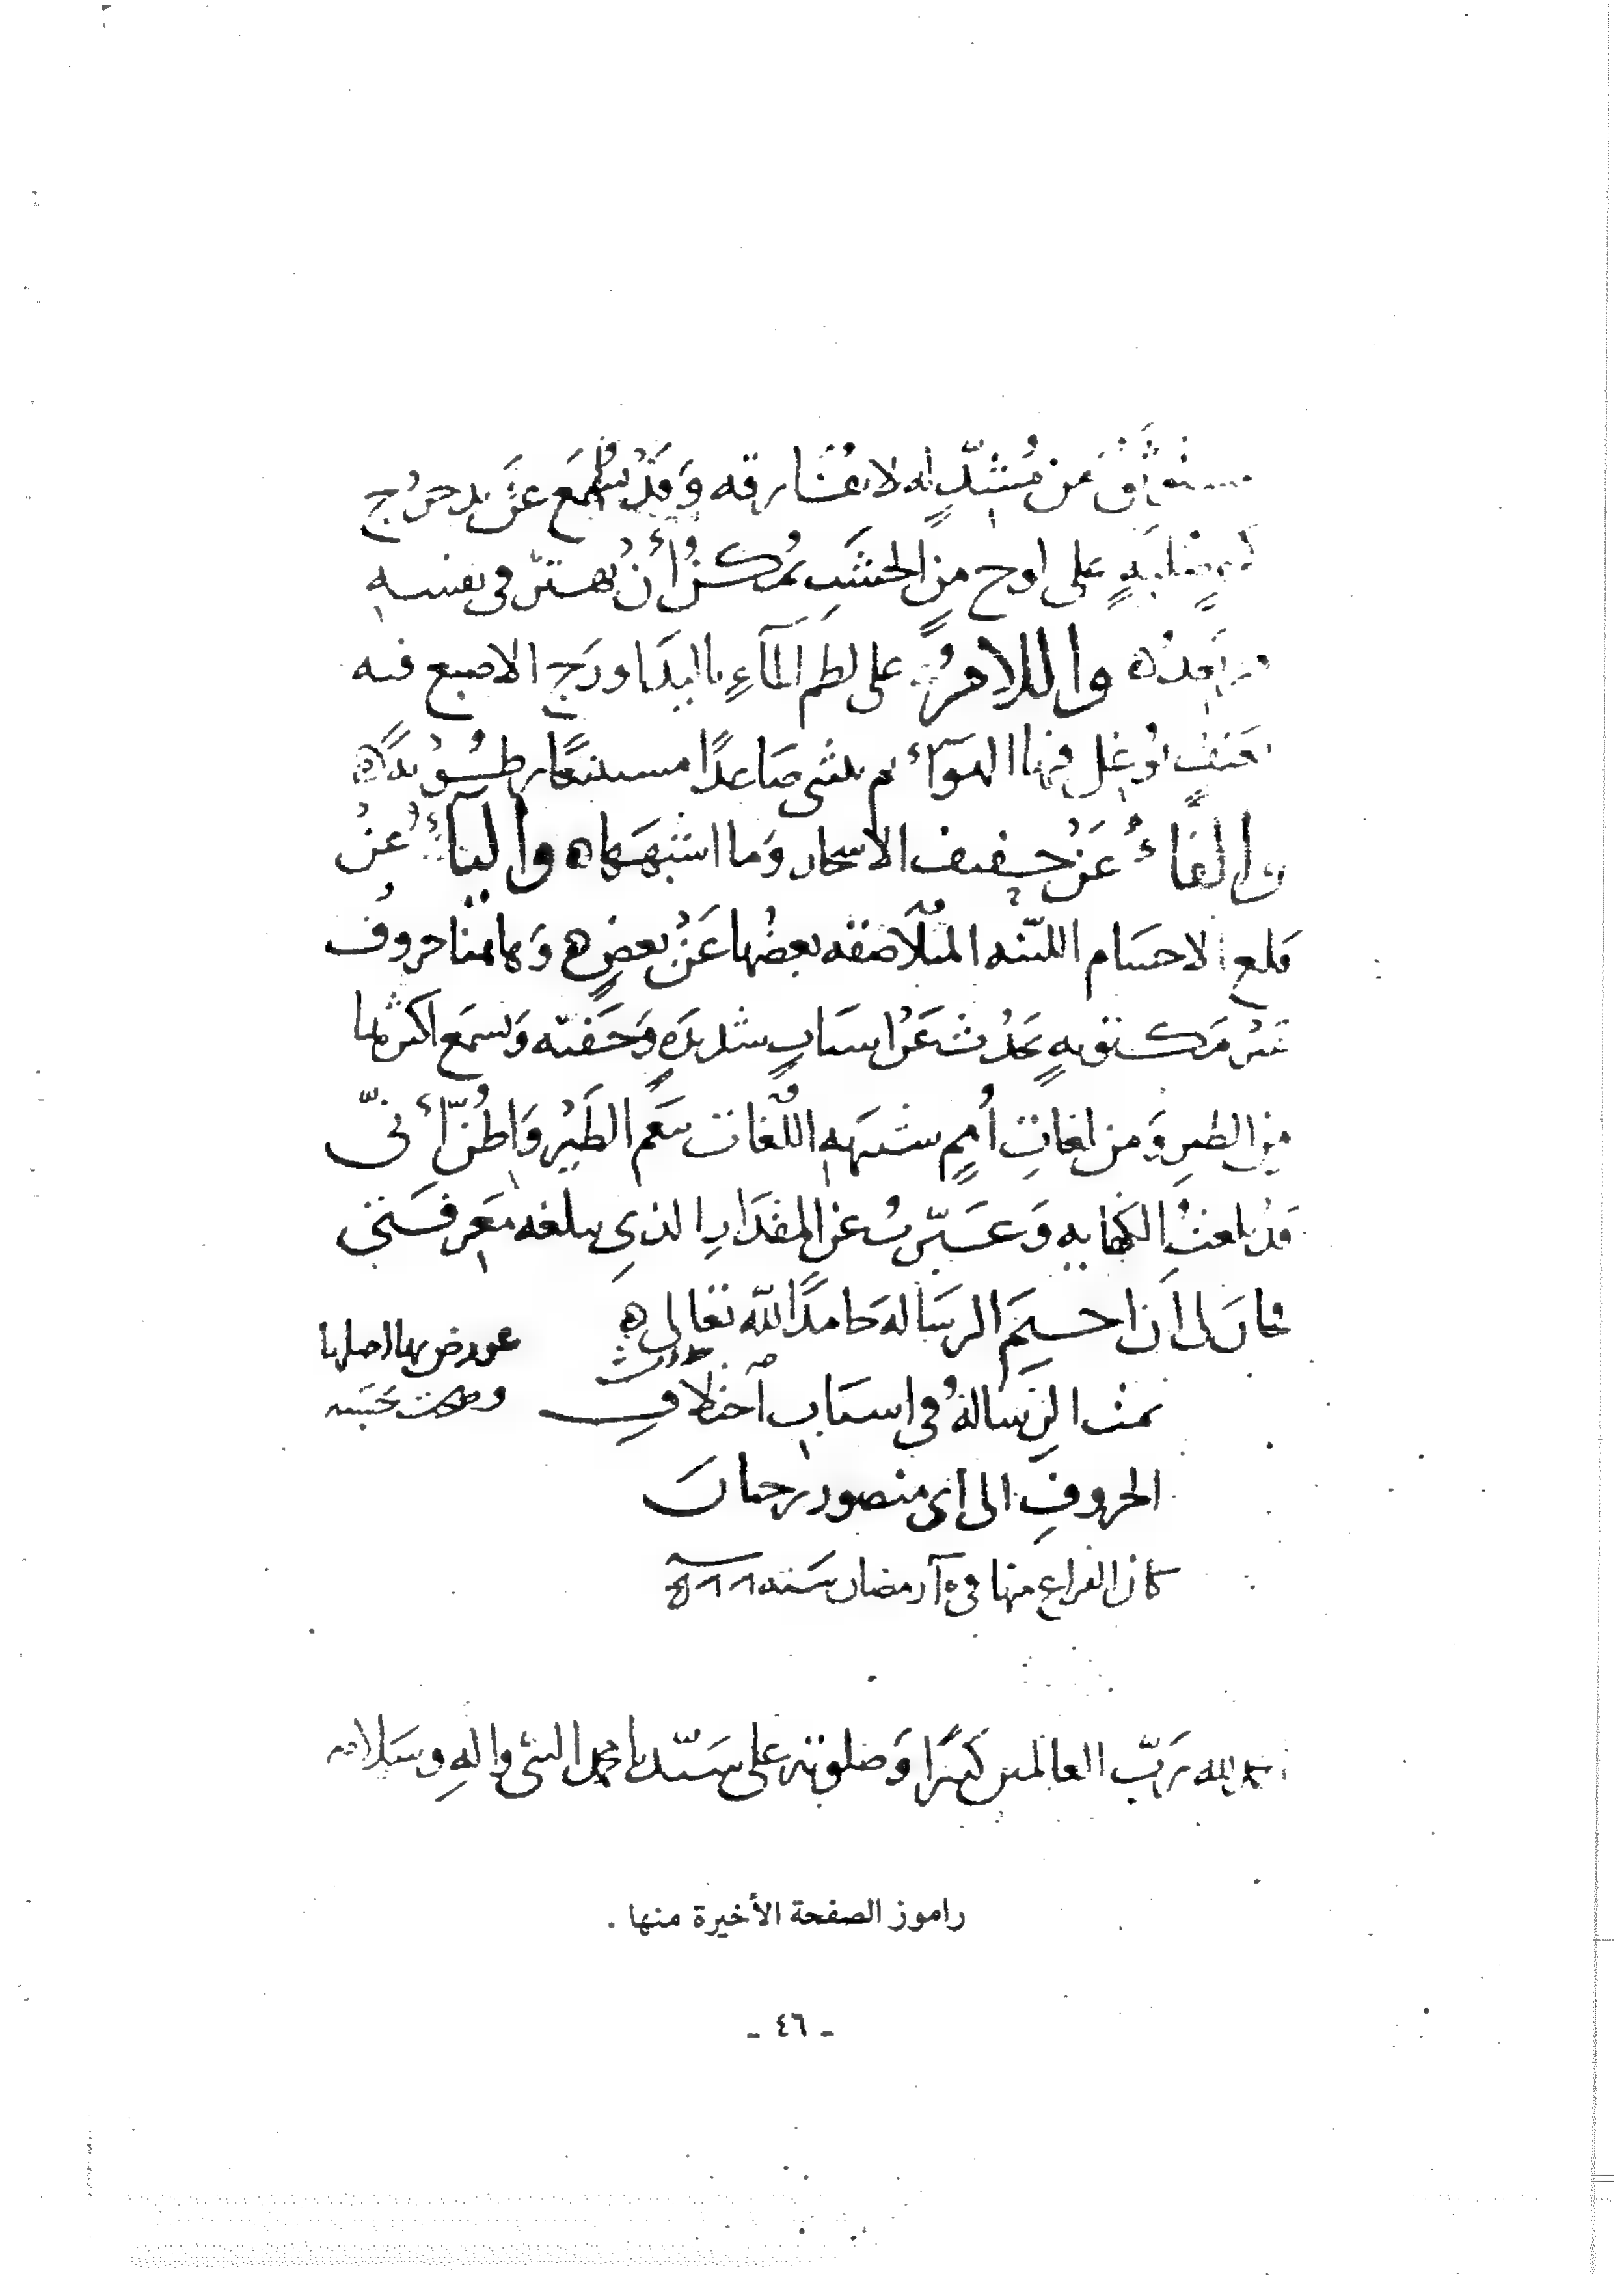 من مشد له لا تفارقه وقد تسمع عن تدحرج
على لوح من الخشب يمكن أن يهتز في نفسه
واللام على لطم الماء باليد او زج الاصبع فيه
بعنف توغل فيها الهواء ثم ينثني صاعدا مستتبعا رطوبة ه
والفاء عن حفيف الاشجار وما اشبهها ه والباء عن
قلع الاجسام اللينه المتلاصقه بعضها عن بعض ه وهاهنا حروف
غير مكتوبه تحدث عن اسباب شديدة وخفيه وتسمع اكثرها
من الطير ومن لغات أمم شبيهه اللغات بنغم الطير واظن أني
قد بلغت الكفايه وعبرت عن المقدار الذي يبلغه معرفتي
فحان لى ان اختم الرساله حامدا لله تعالى ه
عورض بها اصلها
تمت الرسالة في اسباب اختلاف حدوث
وصححت بحسبه
الحروف الى ابي منصور بن جبان
كان الفراغ منها في رمضان سنة
الحمد لله رب العالمين كثيرا وصلوته على سيدنا محمد النبي واله وسلامه
راموز الصفحة الأخيرة منها .
- ٤٦ -